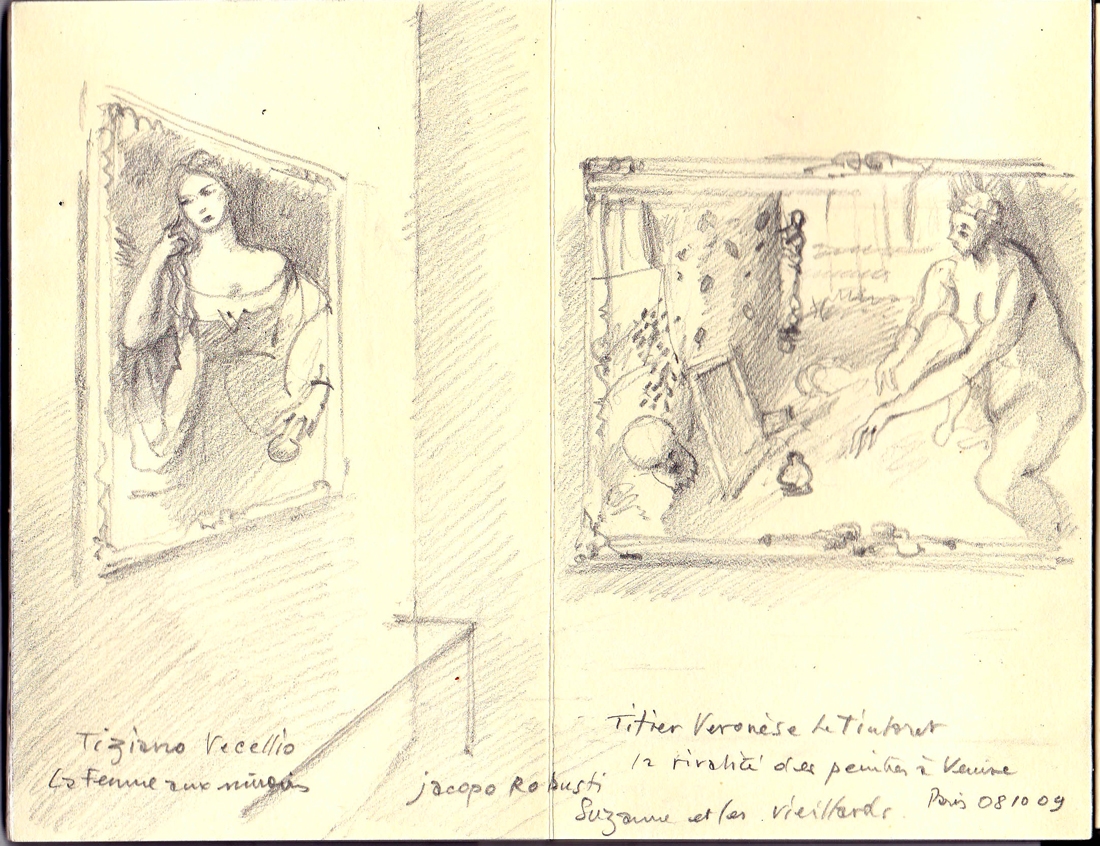 Tiziano Vecellio
La Femme aux miroirs
jacopo Robusti
Titien Veronèse Le Tintoret
la rivalité des peintres à Venise
Suzanne et les vieillards
Paris 08 10 09